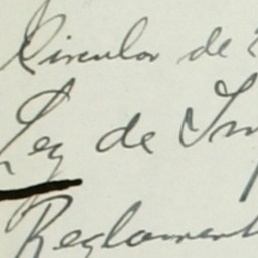 Circular de
Ley de Imp
Reglament